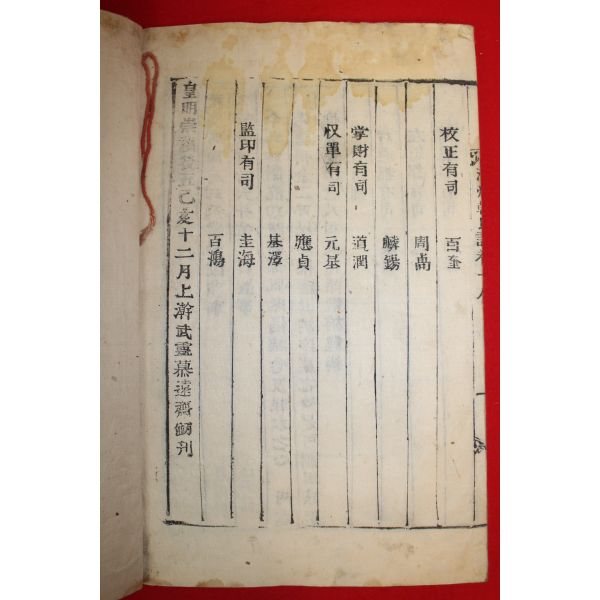 校正有司 百奎
周卨
麟錫
掌財有司 道潤
収單有司 元基
應貞
基澤
監印有司 圭海
百鴻
皇明崇禎後五己亥十二月上澣武靈慕遠齋刊